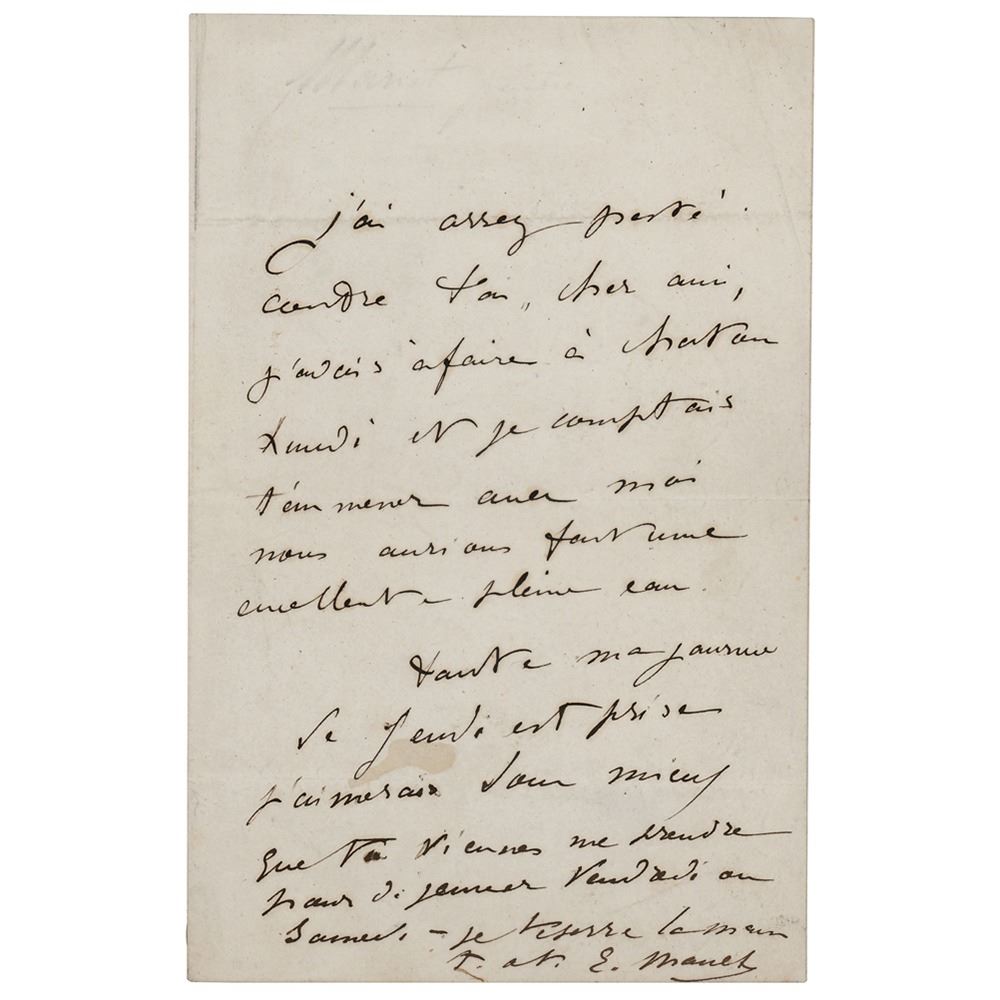 Manet
j'ai assez pesté
contre toi, cher ami,
j'avais à faire à Chatou
Lundi et je comptais
t'emmener avec moi
nous aurions fait une
excellente pleine eau.
toute ma journée
de Jeudi est prise
j'aimerais donc mieux
que tu viennes me prendre
pour déjeuner Vendredi ou
Samedi - je te serre la main
t. à t. E. Manet